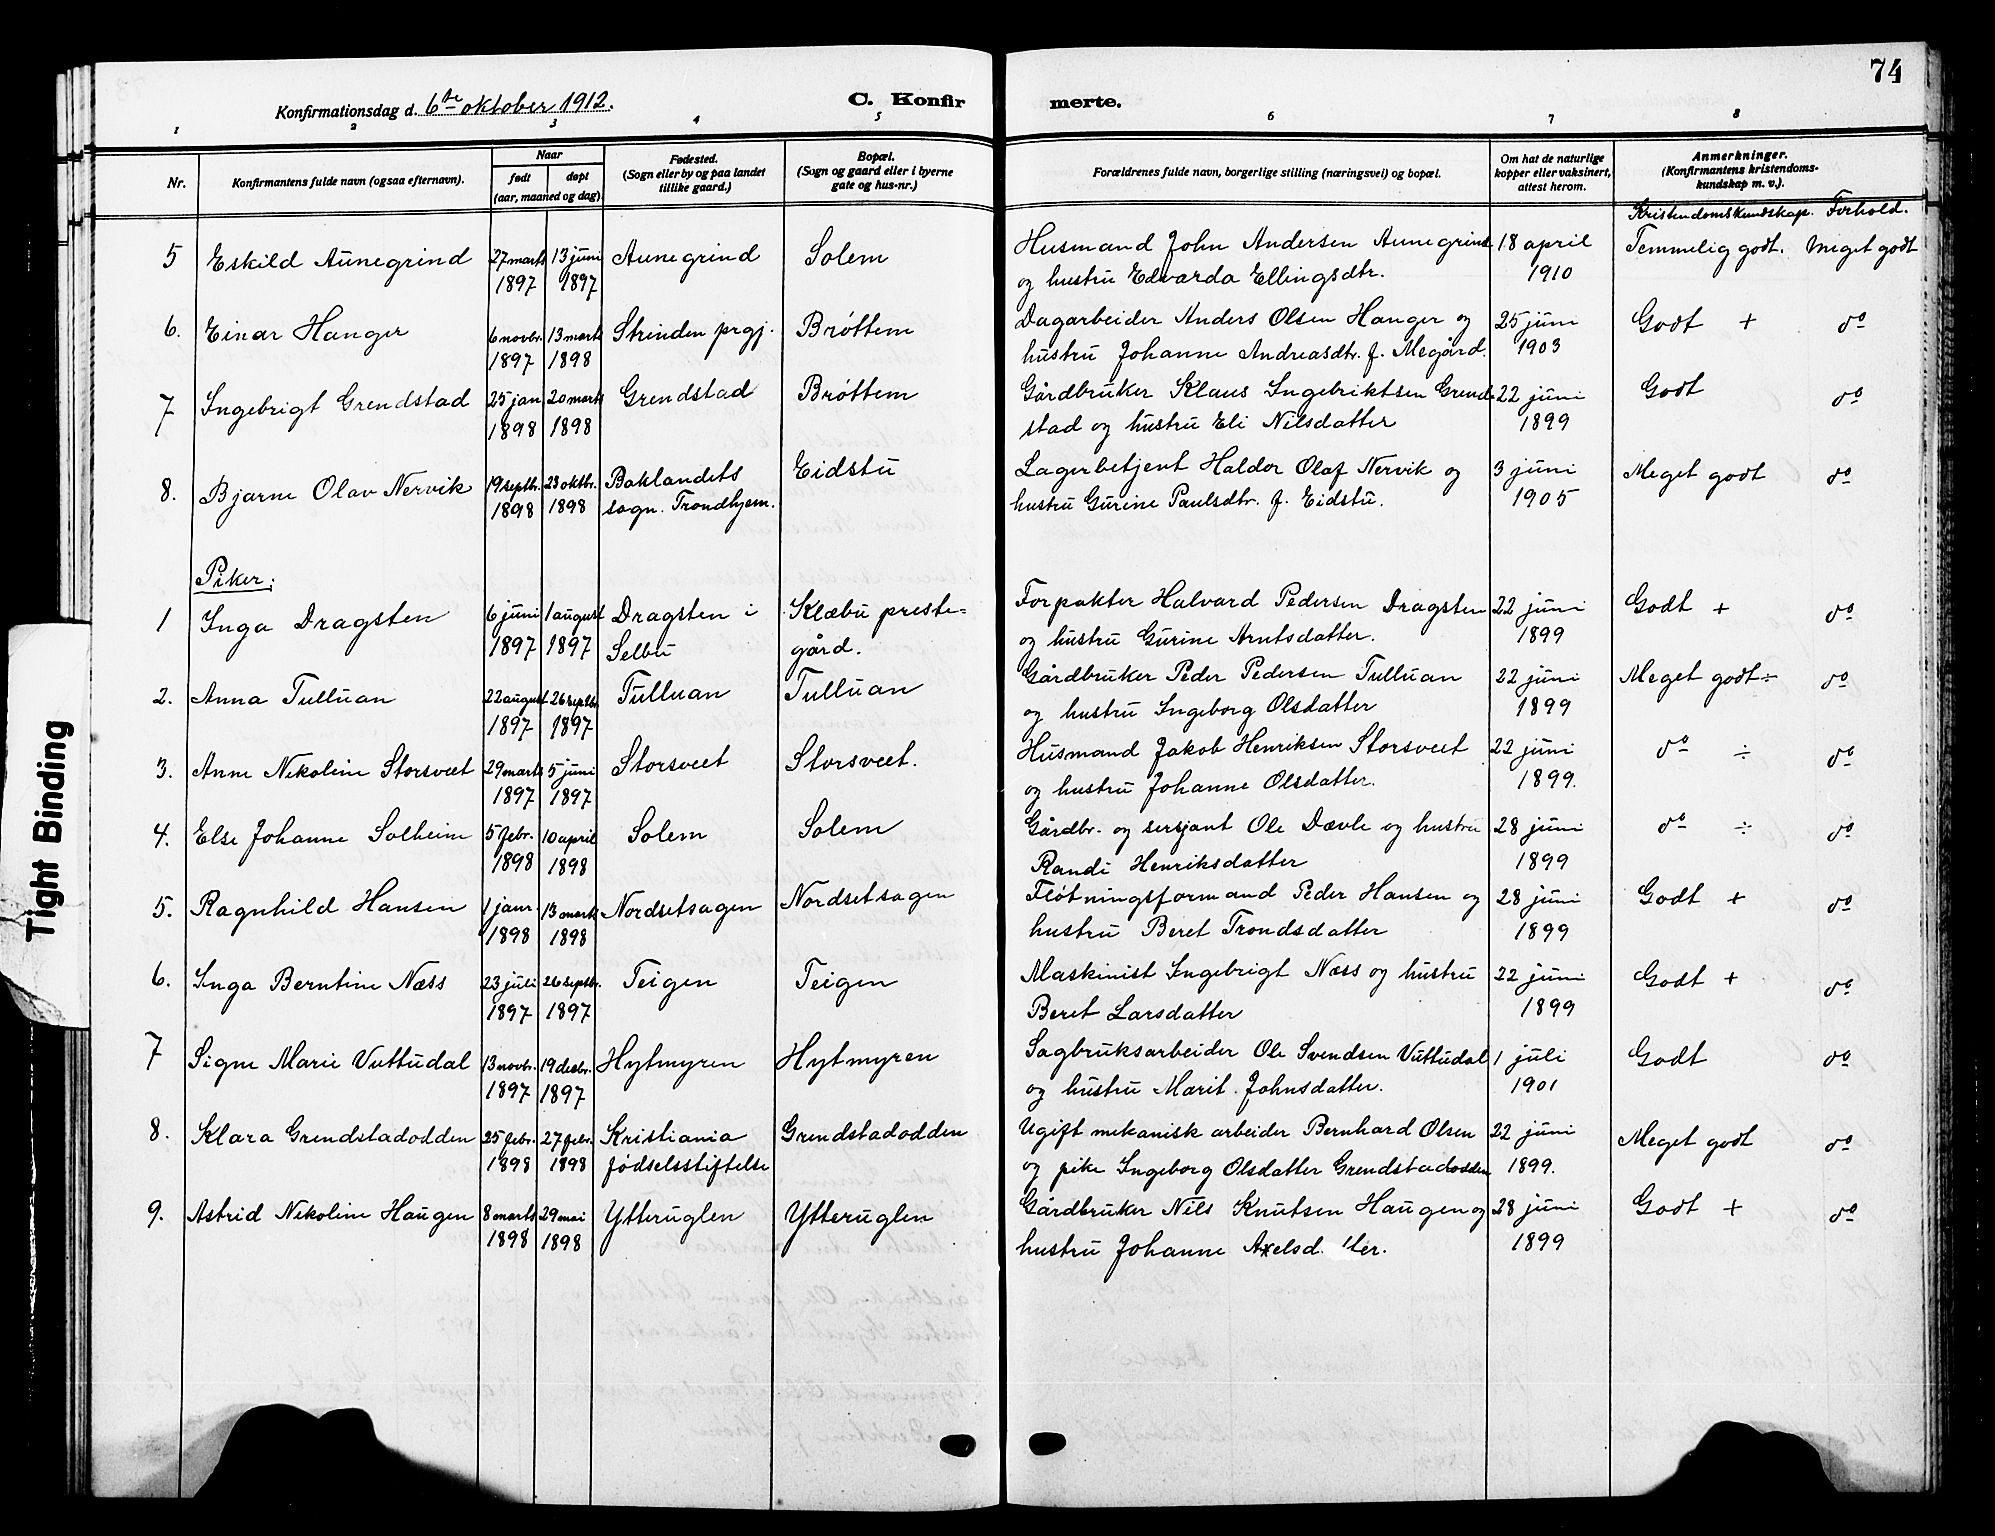 74
Konfirmationsdag d. 6te oktober 1912.
C. Konfirmerte.
1 2 3 4 5 6 7 8
Nr.
Konfirmantens fulde navn (ogsaa efternavn).
Naar
født
døpt
(aar, maaned og dag)
Fødested.
(Sogn eller by og paa landet
tillike gaard.)
Bopæl.
(Sogn og gaard eller i byerne
gate og hus-nr.)
Forældrenes fulde navn, borgerlige stilling (næringsvei) og bopæl.
Om hat de naturlige
kopper eller vaksinert,
attest herom.
Anmerkninger.
(Konfirmantens kristendoms-
kundskap m. v.).
Kristendomskundskap. Forhold.
5 Eskild Aunegrind 27 marts 13 juni Aunegrind Solem Husmand John Andersen Aunegrind 18 april Temmelig godt. Meget godt
1897 1897 og hustru Edvarda Ellingsdtr. 1910
6. Einar Hanger 6 novbr. 13 marts Strinden prgj. Brøttem Dagarbeider Anders Olsen Hanger og 25 juni Godt + do
1897 1898 hustru Johanne Andreasdtr. f. Megård. 1903
7 Ingebrigt Grendstad 25 jan 20 marts Grendstad Brøttem Gårdbruker Klaus Ingebriktsen Grend- 22 juni Godt do
1898 1898 stad og hustru Eli Nilsdatter 1899
8. Bjarne Olav Nervik 19 septbr. 23 oktbr. Baklandets Eidstu Lagerbetjent Haldor Olaf Nervik og 3 juni Meget godt do
1898 1898 sogn. Trondhjem. hustru Gurine Paulsdtr. f. Eidstu. 1905
Piker:
1 Inga Dragsten 6 juni 1 august Dragsten i Klæbu preste- Forpakter Halvard Pedersen Dragsten 22 juni Godt + do
1897 1897 Selbu gård. og hustru Gurine Arntsdatter. 1899
2. Anna Tulluan 22 august 26 septbr. Tulluan Tulluan Gårdbruker Peder Pedersen Tulluan 22 juni Meget godt ÷ do
1897 1897 og hustru Ingeborg Olsdatter 1899
3. Anne Nikoline Storsveet 29 marts 5 juni Storsveet Storsveet. Husmand Jakob Henriksen Storsveet 22 juni do ÷ do
1897 1897 og hustru Johanne Olsdatter. 1899.
4. Else Johanne Solheim 5 febr. 10 april Solem Solem Gårdbr. og sersjant Ole Dævle og hustru 28 juni do ÷ do
1898 1898 Randi Henriksdatter 1899
5. Ragnhild Hansen 1 janr. 13 marts Nordsetsagen Nordsetsagen Fløtningsformand Peder Hansen og 28 juni Godt + do
1898 1898 hustru Beret Trondsdatter 1899
6. Inga Berntine Næss 23 juli 26 septbr. Teigen Teigen Maskinist Ingebrigt Næss og hustru 22 juni Godt + do
1897 1897 Beret Larsdatter 1899
7 Signe Marie Vuttudal 13 novbr. 19 desbr. Hytmyren Hytmyren Sagbruksarbeider Ole Svendsen Vuttudal 1 juli Godt do
1897 1897 og hustru Marit Johnsdatter. 1901
8. Klara Grendstadodden 25 febr. 27 febr. Kristiania Grendstadodden Ugift mekanisk arbeider Bernhard Olsen 22 juni Meget godt do
1898 1898 fødselsstiftelse og pike Ingeborg Olsdatter Grendstadodden 1899.
9. Astrid Nikoline Haugen 8 marts 29 mai Ytteruglen Ytteruglen Gårdbruker Nils Knutsen Haugen og 28 juni Godt + do
1898 1898 hustru Johanne 1899
Tight Binding